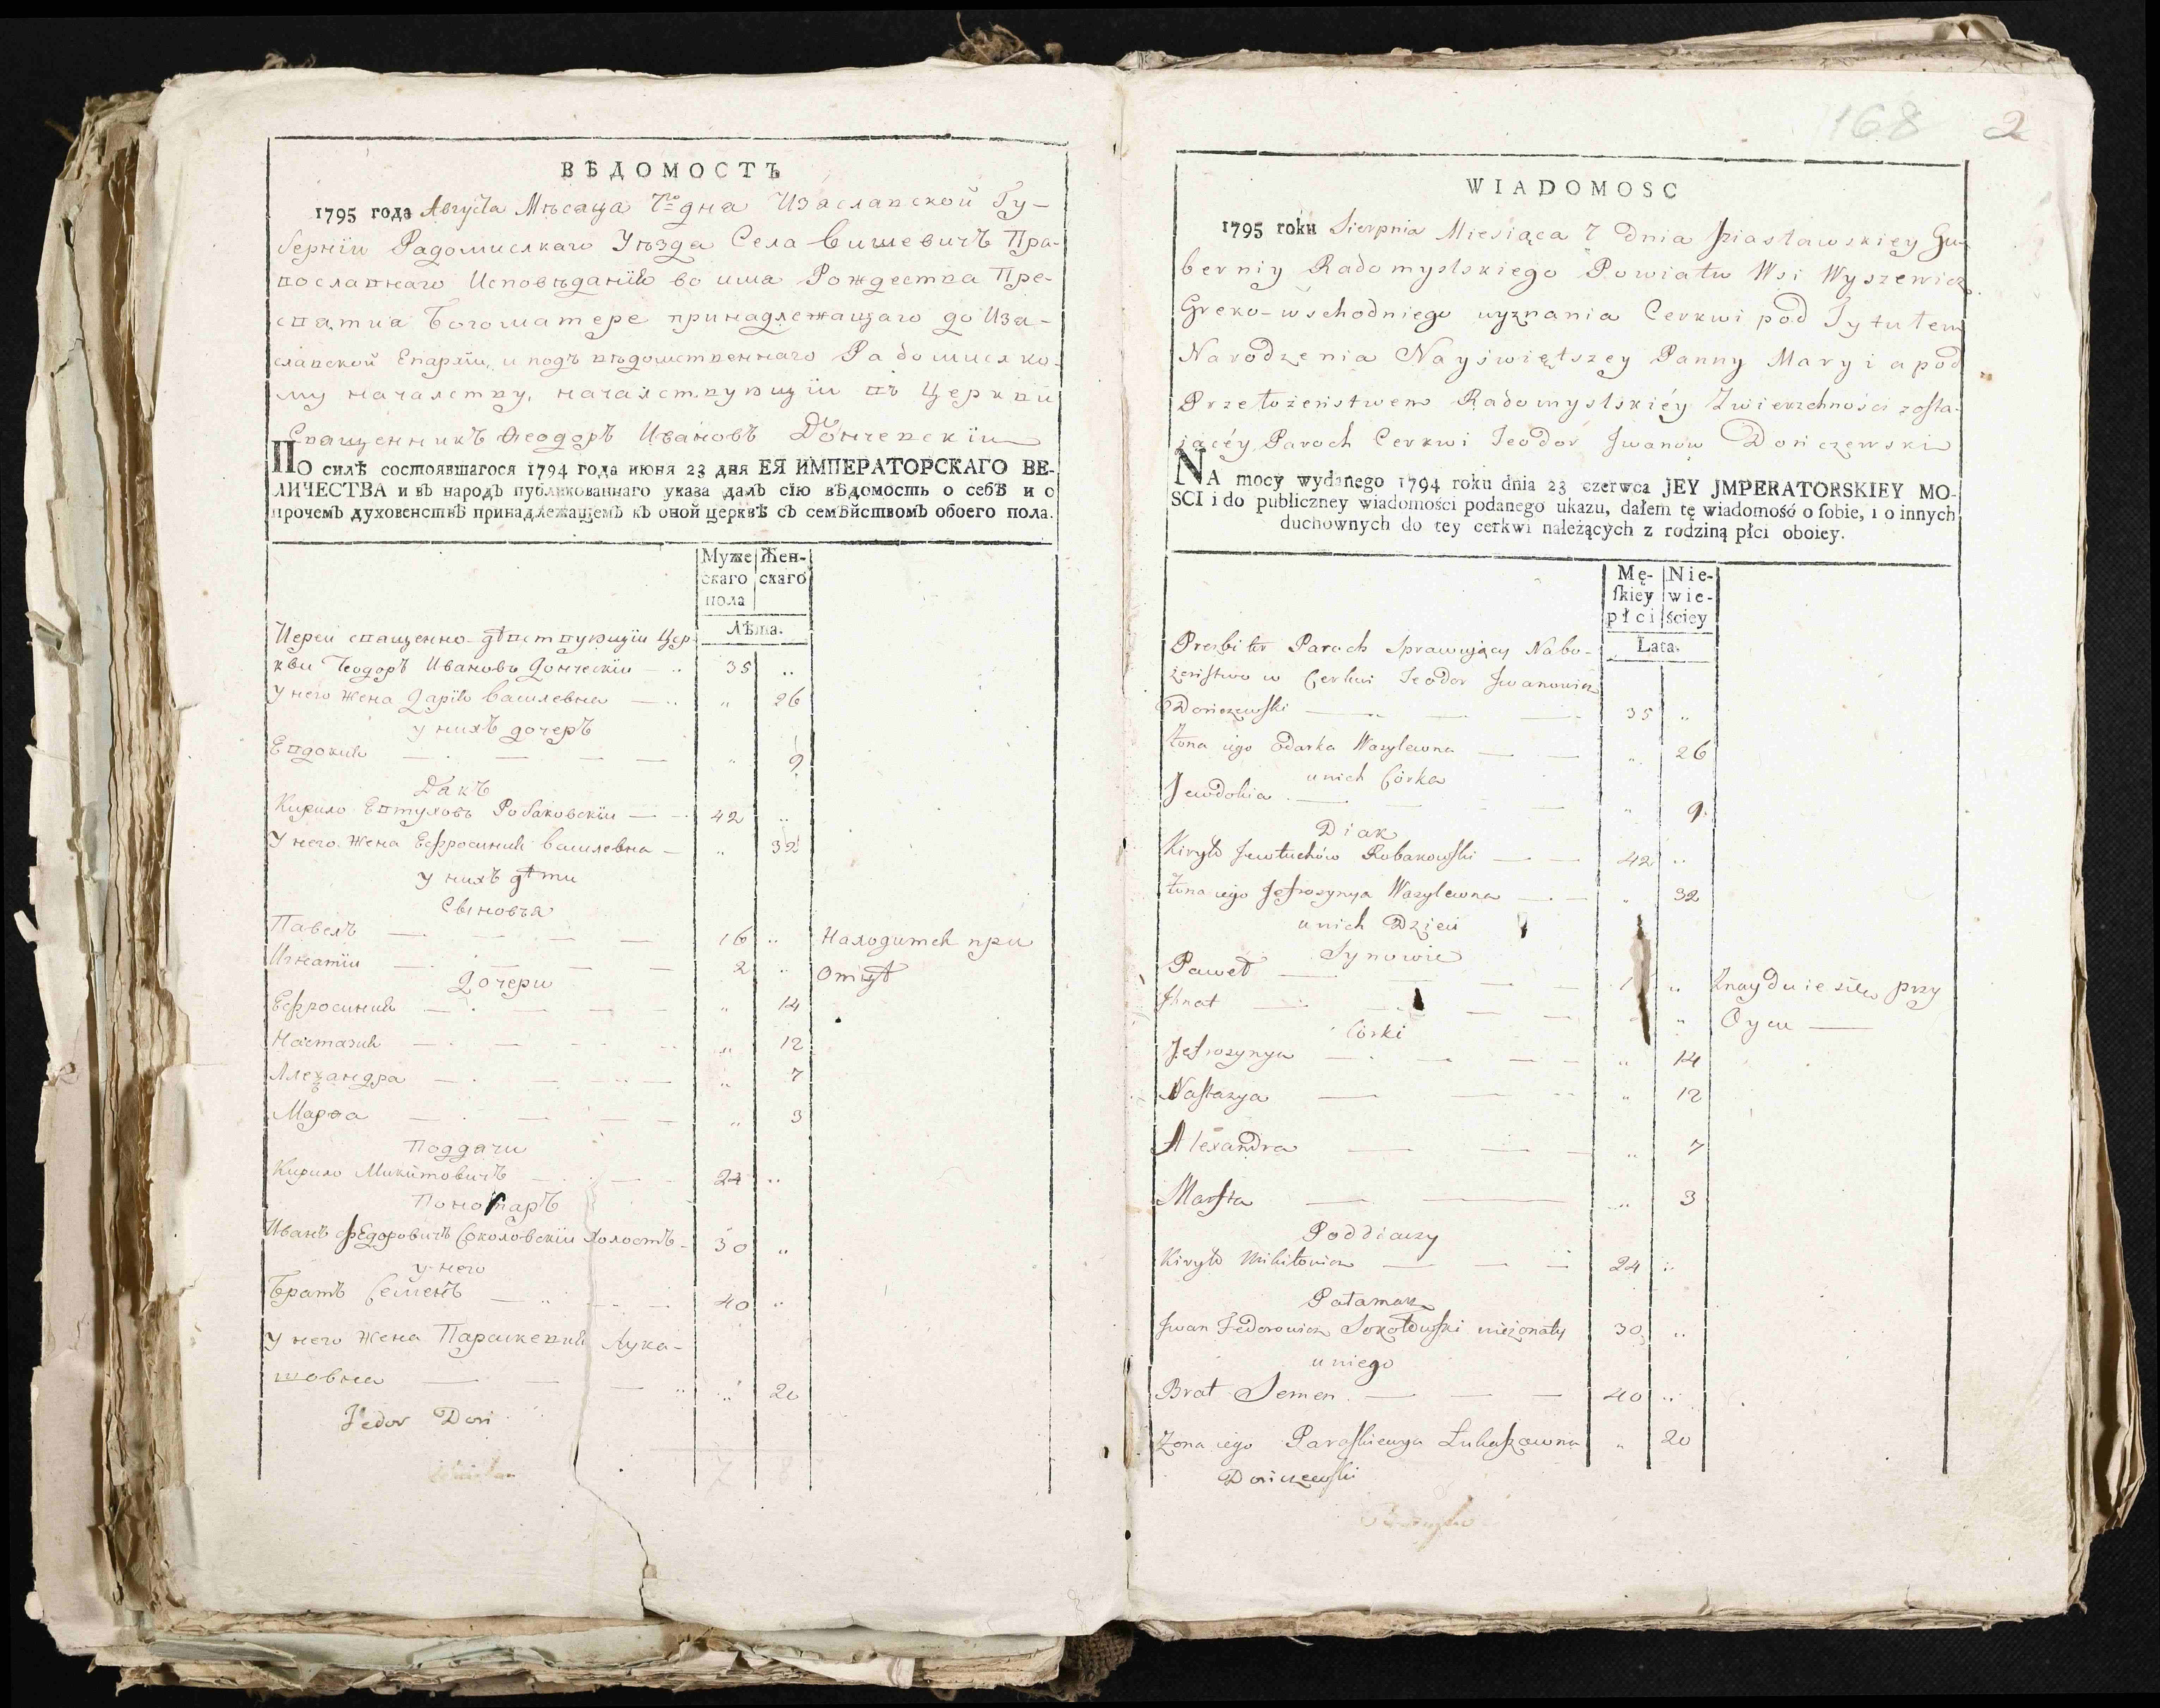 ВѢДОМОСТЪ
1795 года Августа Мѣсаца 7го дна Изаславской Гу-
бернїи Радомислкаго Уѣзда Села Вишевичъ Пра-
вославнаго Исповѣданїй во имa Рождества Пре-
сватиа Богоматере принадлежащаго до Иза-
славской Епархїи, и подъ вѣдомственнаго Радомиско-
му началству, началствующїи въ Церкви
Сващенникъ Ѳеодоръ Ивановъ Дончевскїи
ПО силѣ состоявшагося 1794 года июня 23 дня ЕЯ ИМПЕРАТОРСКАГО ВЕ-
ЛИЧЕСТВА и въ народъ публикованнаго указа далъ сїю вѣдомость о себѣ и о
прочемъ духовенствѣ принадлежащемъ къ оной церквѣ съ семѣйствомъ обоего пола.
Муже Жен-
скаго скаго
пола
Лѣта.
Иереи сващенно-дѣствующїи Цер
кви Ѳеодоръ Ивановъ Дончевскїи 35 ..
У него жена Дарїй Василевна „ 26
у нихъ дочеръ
Евдокий „ 9
Дакъ
Кирило Евтуховъ Робаковскїи 42 ..
У него жена Ефросиний Василевна „ 32
у нихъ дѣти
Сыновъя
Павелъ 16 .. Находитсй при
Игнатїи 2 .. Отцѣ
Дочери
Ефросиний „ 14
Настазий „ 12
Алеѯандра „ 7
Марѳа „ 3
Поддачи
Кирило Микитовичъ 24 ..
Пономаръ
Иванъ Федоровичъ Соколовскїи холостъ 30 „
у него
Братъ Семенъ 40 „
У него жена Параскевий Лука-
шовна „ 20
Fedor Dori
168 2
WIADOMOSC
1795 roku Sierpnia Miesiąca 7 Dnia Iziasławskiey Gu-
berniy Radomyslskiego Powiatu Wsi Wyszewicz
Greko-wschodniego wyznania Cerkwi pod Tytułem
Narodzenia Nayświętszey Panny Maryi a pod
Przełożeństwem Radomyslskiéy Zwierzchności zosta-
iącéy Paroch Cerkwi Teodor Jwanow Dończewski
NA mocy wydanego 1794 roku dnia 23 czerwca JEY JMPERATORSKIEY MO-
SCI i do publiczney wiadomości podanego ukazu, dałem tę wiadomość o sobie, i o innych
duchownych do tey cerkwi należących z rodziną płci oboiey.
Mę- Nie-
skiey wie-
płci ściey
Lata.
Prezbiter Paroch Sprawuiący Nabo-
żeństwo w Cerkwi Teodor Jwanowicz
Dończewski 35 „
Żona iego Odarka Wasylewna „ 26
u nich Córka
Jewdokia „ 9
Diak
Kiryło Jewtuchów Robakowski 42 ..
Żona iego Jefrozynya Wasylewna „ 32
u nich Dzieci
Synowie
Paweł „ Znayduie się przy
Jhnat „ Oycu
Córki
Jefrozynya „ 14
Nastazya „ 12
Alexandra „ 7
Marfta „ 3
Poddiaczy
Kiryło Mikitowicz 24 ..
Patamarz
Jwan Fedorowicz Sokołowski nieżonaty 30 ..
u niego
Brat Semen 40 ..
Żona iego Paraskiewya Łukaszowna „ 20
Dończewski